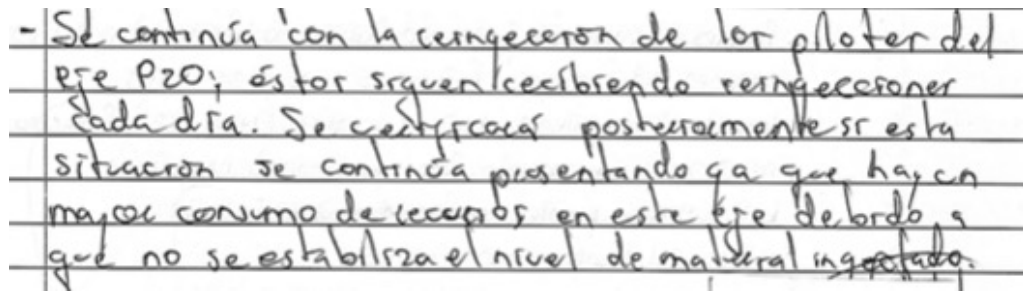 - Se continúa con la reinyección de los pilotes del
eje P20; éstos siguen recibiendo reinyecciones
cada día. Se verificará posteriormente si esta
situación se continúa presentando ya que hay un
mayor consumo de recursos en este eje debido a
que no se estabiliza el nivel de material inyectado.